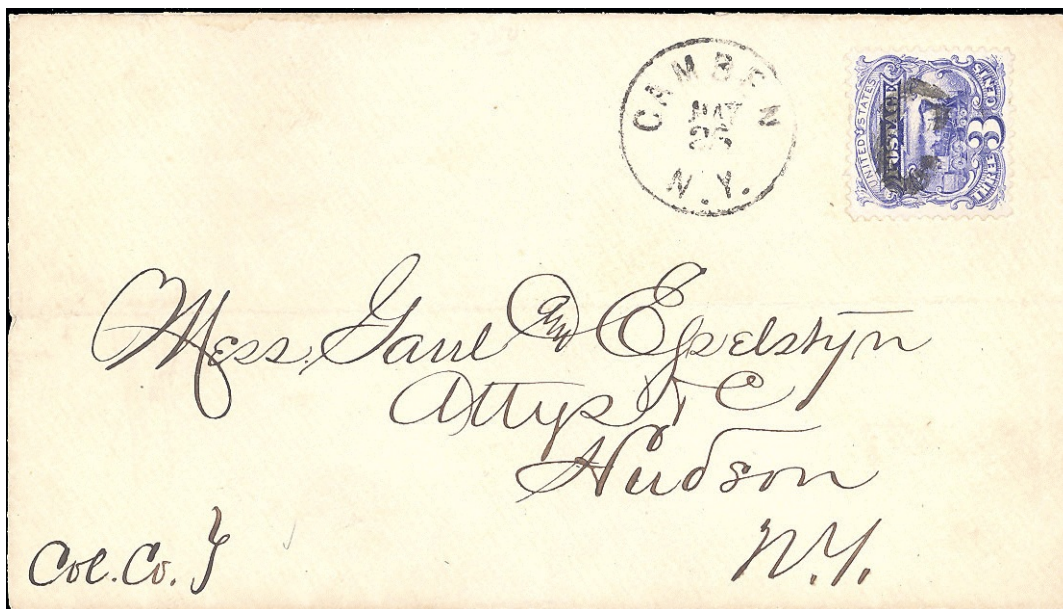 CAMDEN
MAY
25
N.Y.
UNITED STATES
POSTAGE
THREE CENTS
3
Mess. Gaul and Esselstyn
Attys & C
Hudson
N.Y.
Col. Co.